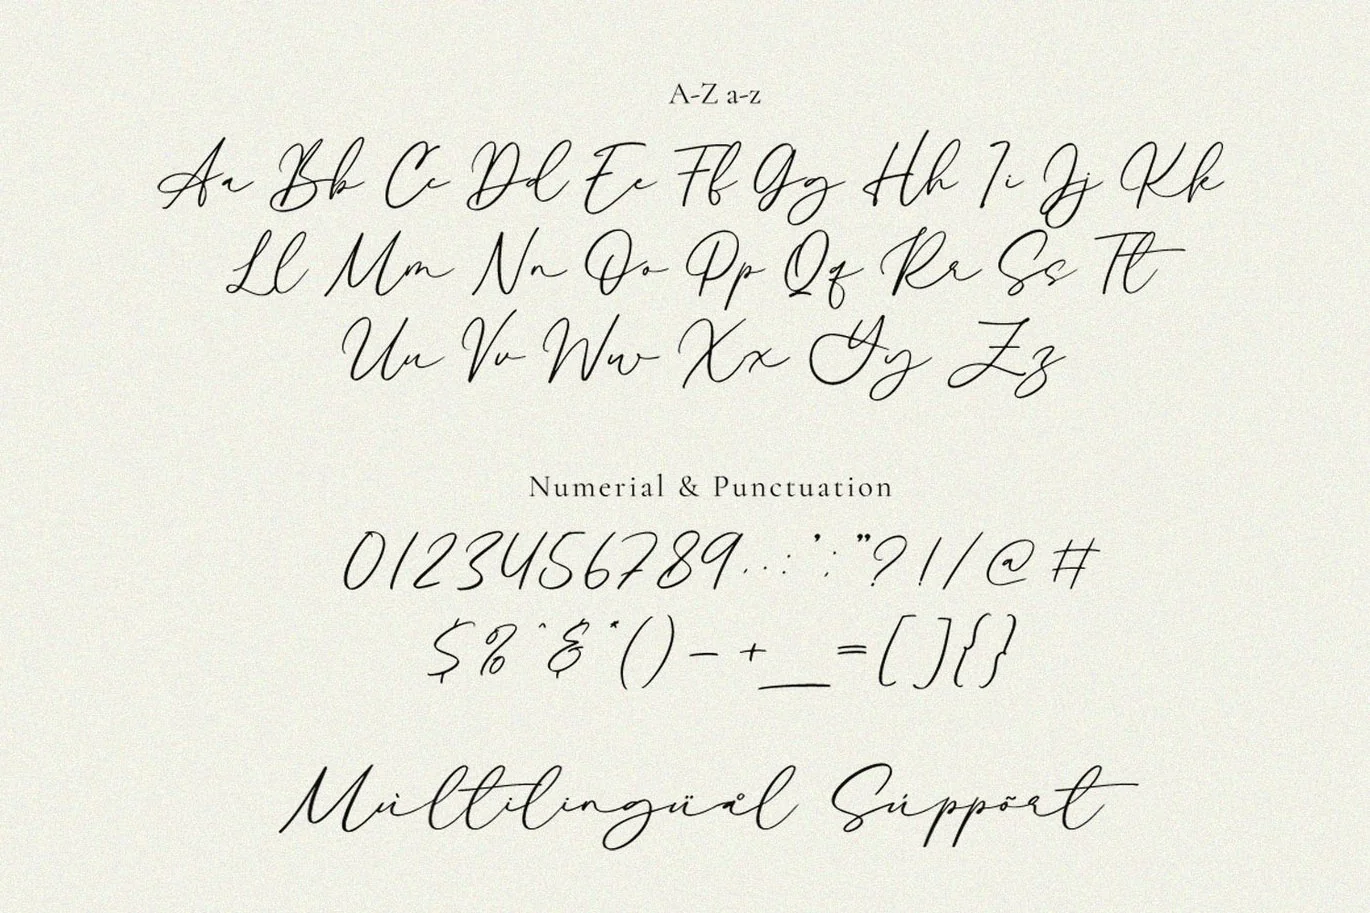 A-Z a-z
Aa Bb Cc Dd Ee Ff Gg Hh Ii Jj Kk
Ll Mm Nn Oo Pp Qq Rr Ss Tt
Uu Vv Ww Xx Yy Zz
Numerial & Punctuation
0123456789.,:';"?!/@#
$%^&*()-+_=[]{}
Mùltilingüål Súppõrt